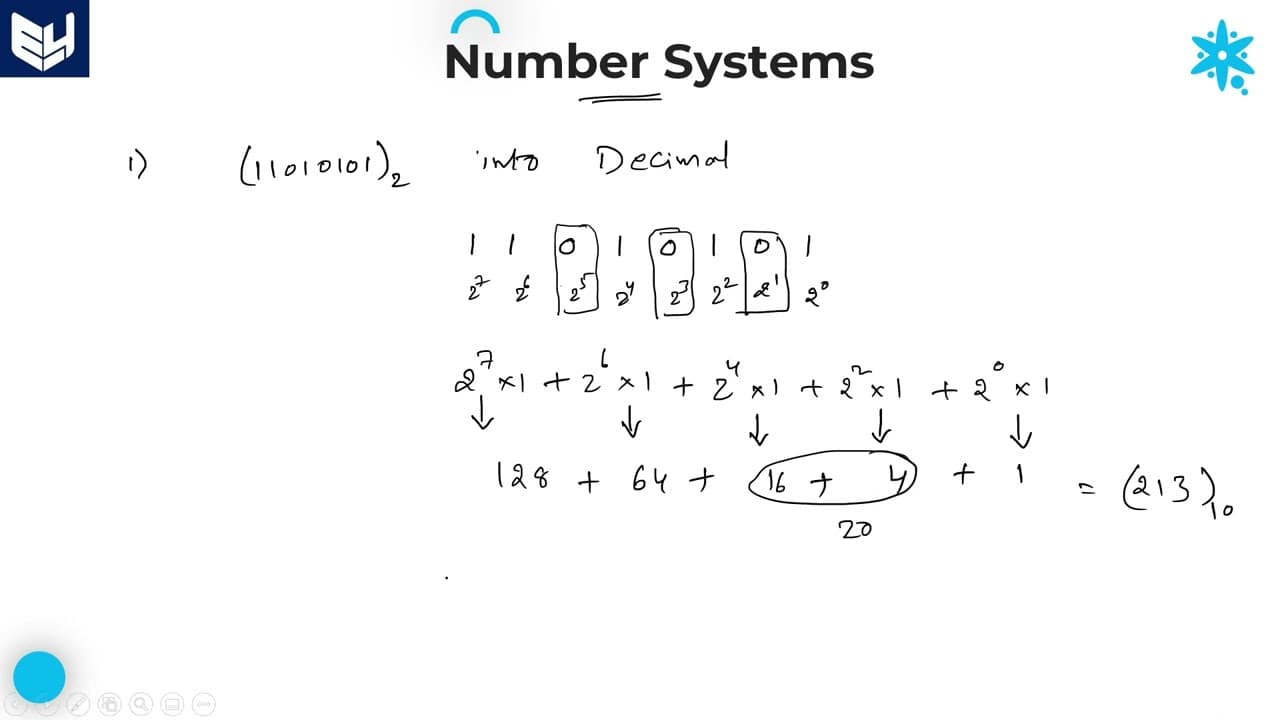 EY
Number Systems
1) (11010101)₂ into Decimal
1 1 0 1 0 1 0 1
2⁷ 2⁶ 2⁵ 2⁴ 2³ 2² 2¹ 2⁰
2⁷ ×1 + 2⁶ ×1 + 2⁴ ×1 + 2² ×1 + 2⁰ ×1
128 + 64 + 16 + 4 + 1 = (213)₁₀
20